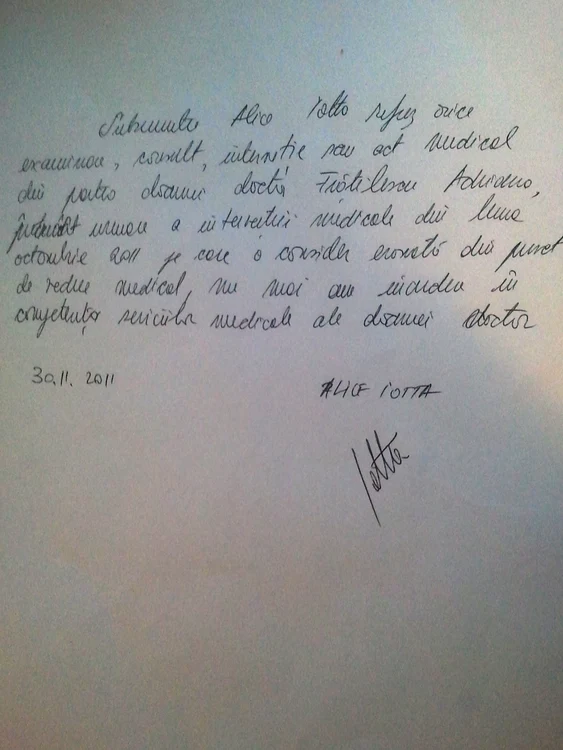 Subsemnata Alice Iotta refuz orice
examinare, consult, intervenție sau act medical
din partea doamnei doctor Frătilescu Adriana,
urmare a intervenției medicale din luna
octombrie 2011 pe care o consider eronată din punct
de vedere medical, nu mai am încredere în
competența serviciilor medicale ale doamnei doctor
30.11.2011
ALICE IOTTA
Iotta